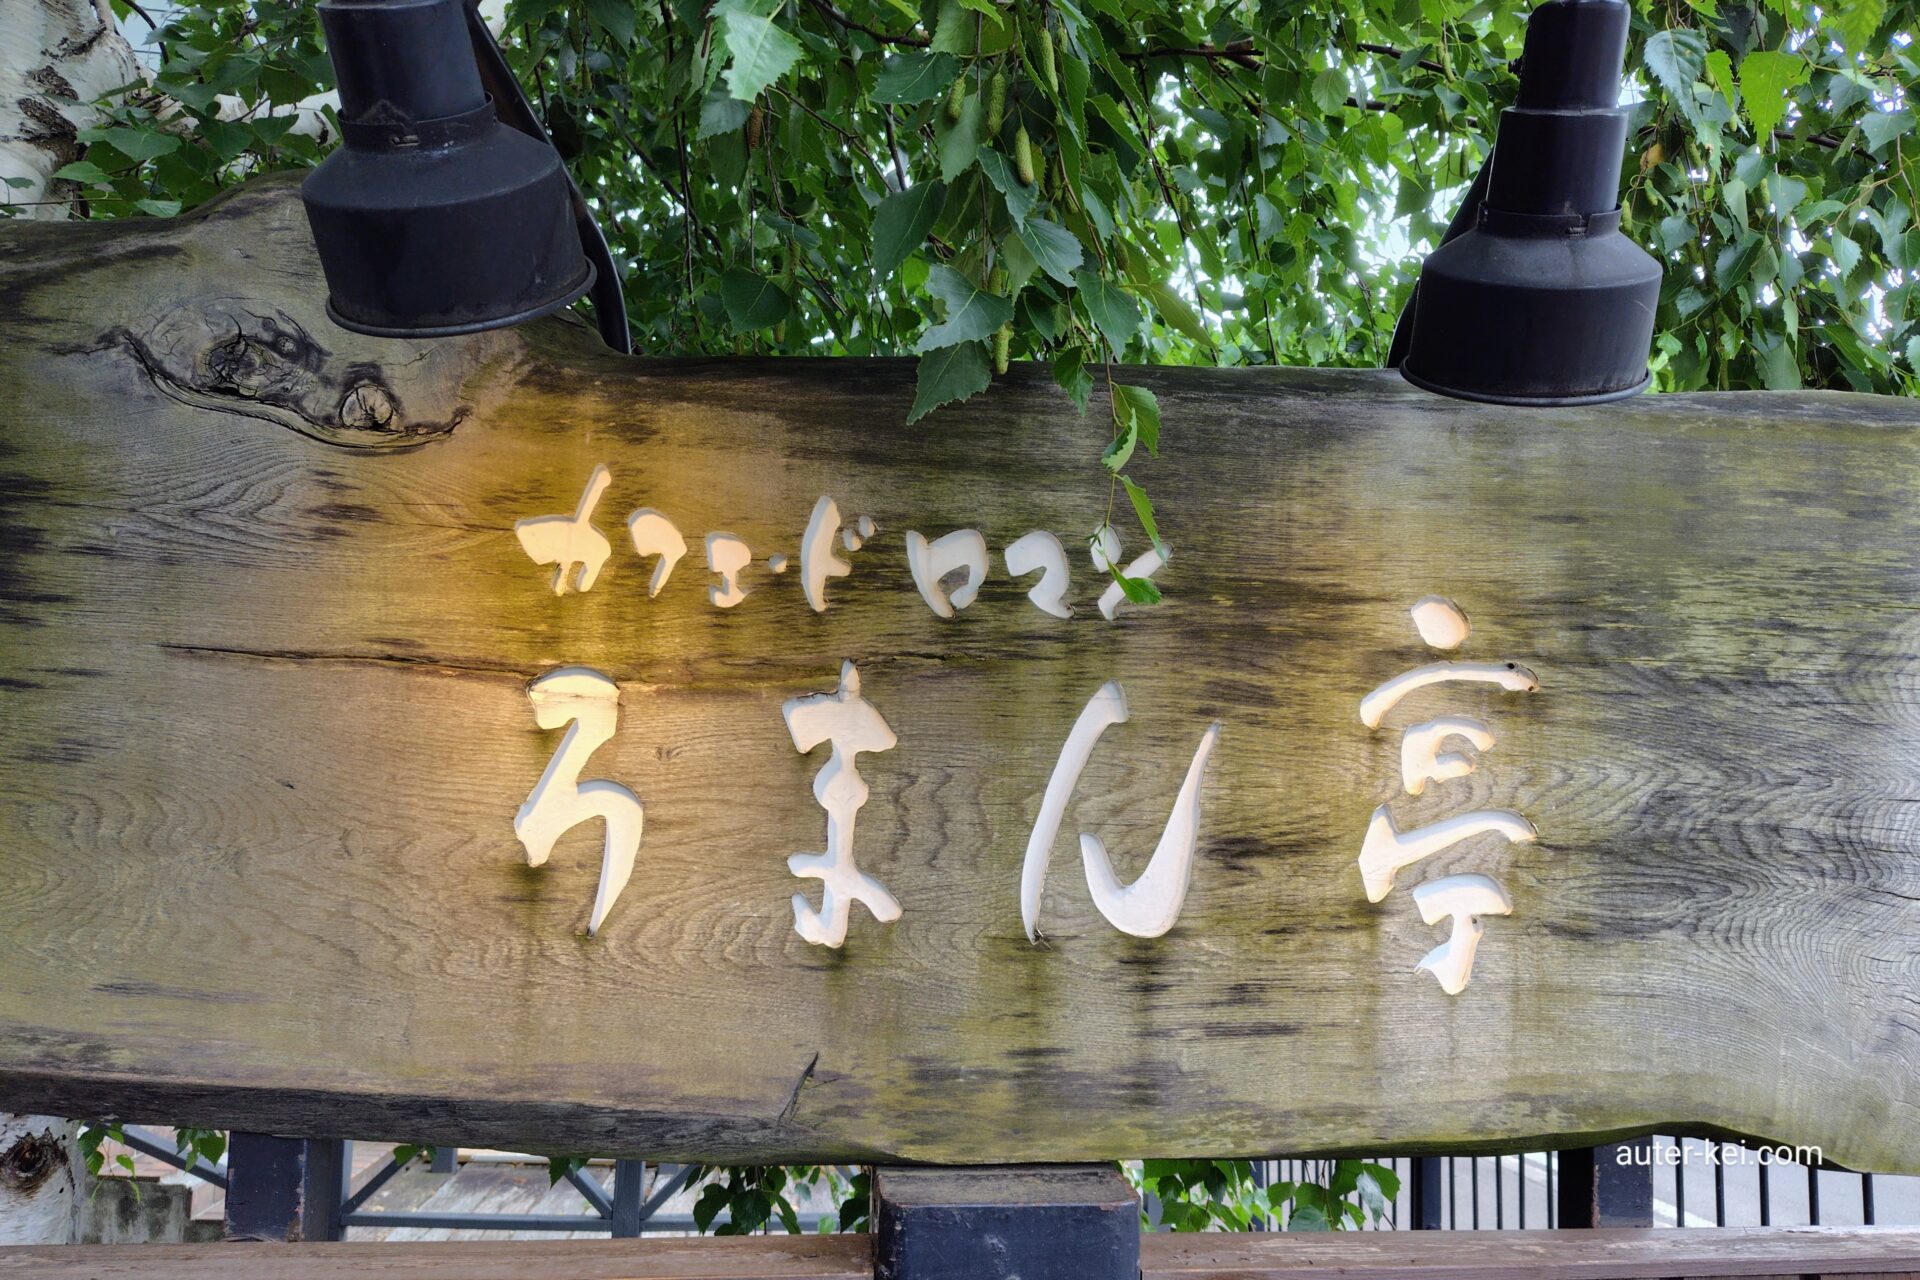 カフェ・ド ロマン
ろまん亭
auter-kei.com